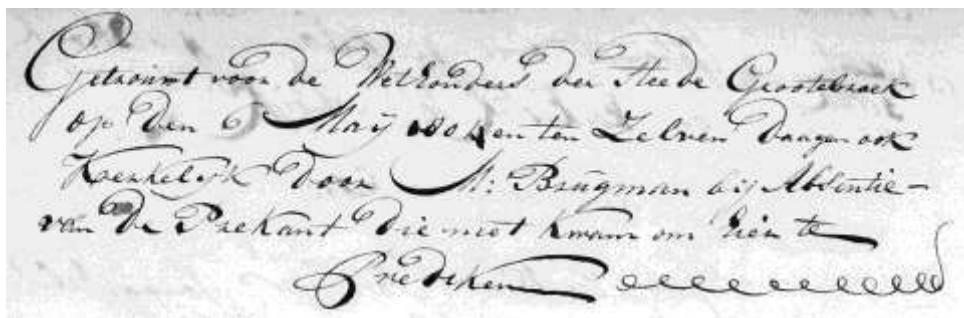 Getrouwt voor de Wethouders der Steede Grootebroek
op den 6 May 1804 en ten Zelven daagen ook
Kerkelyk door M: Brugman bij Absentie
van De Prekant Die niet kwam om hier te
Prediken